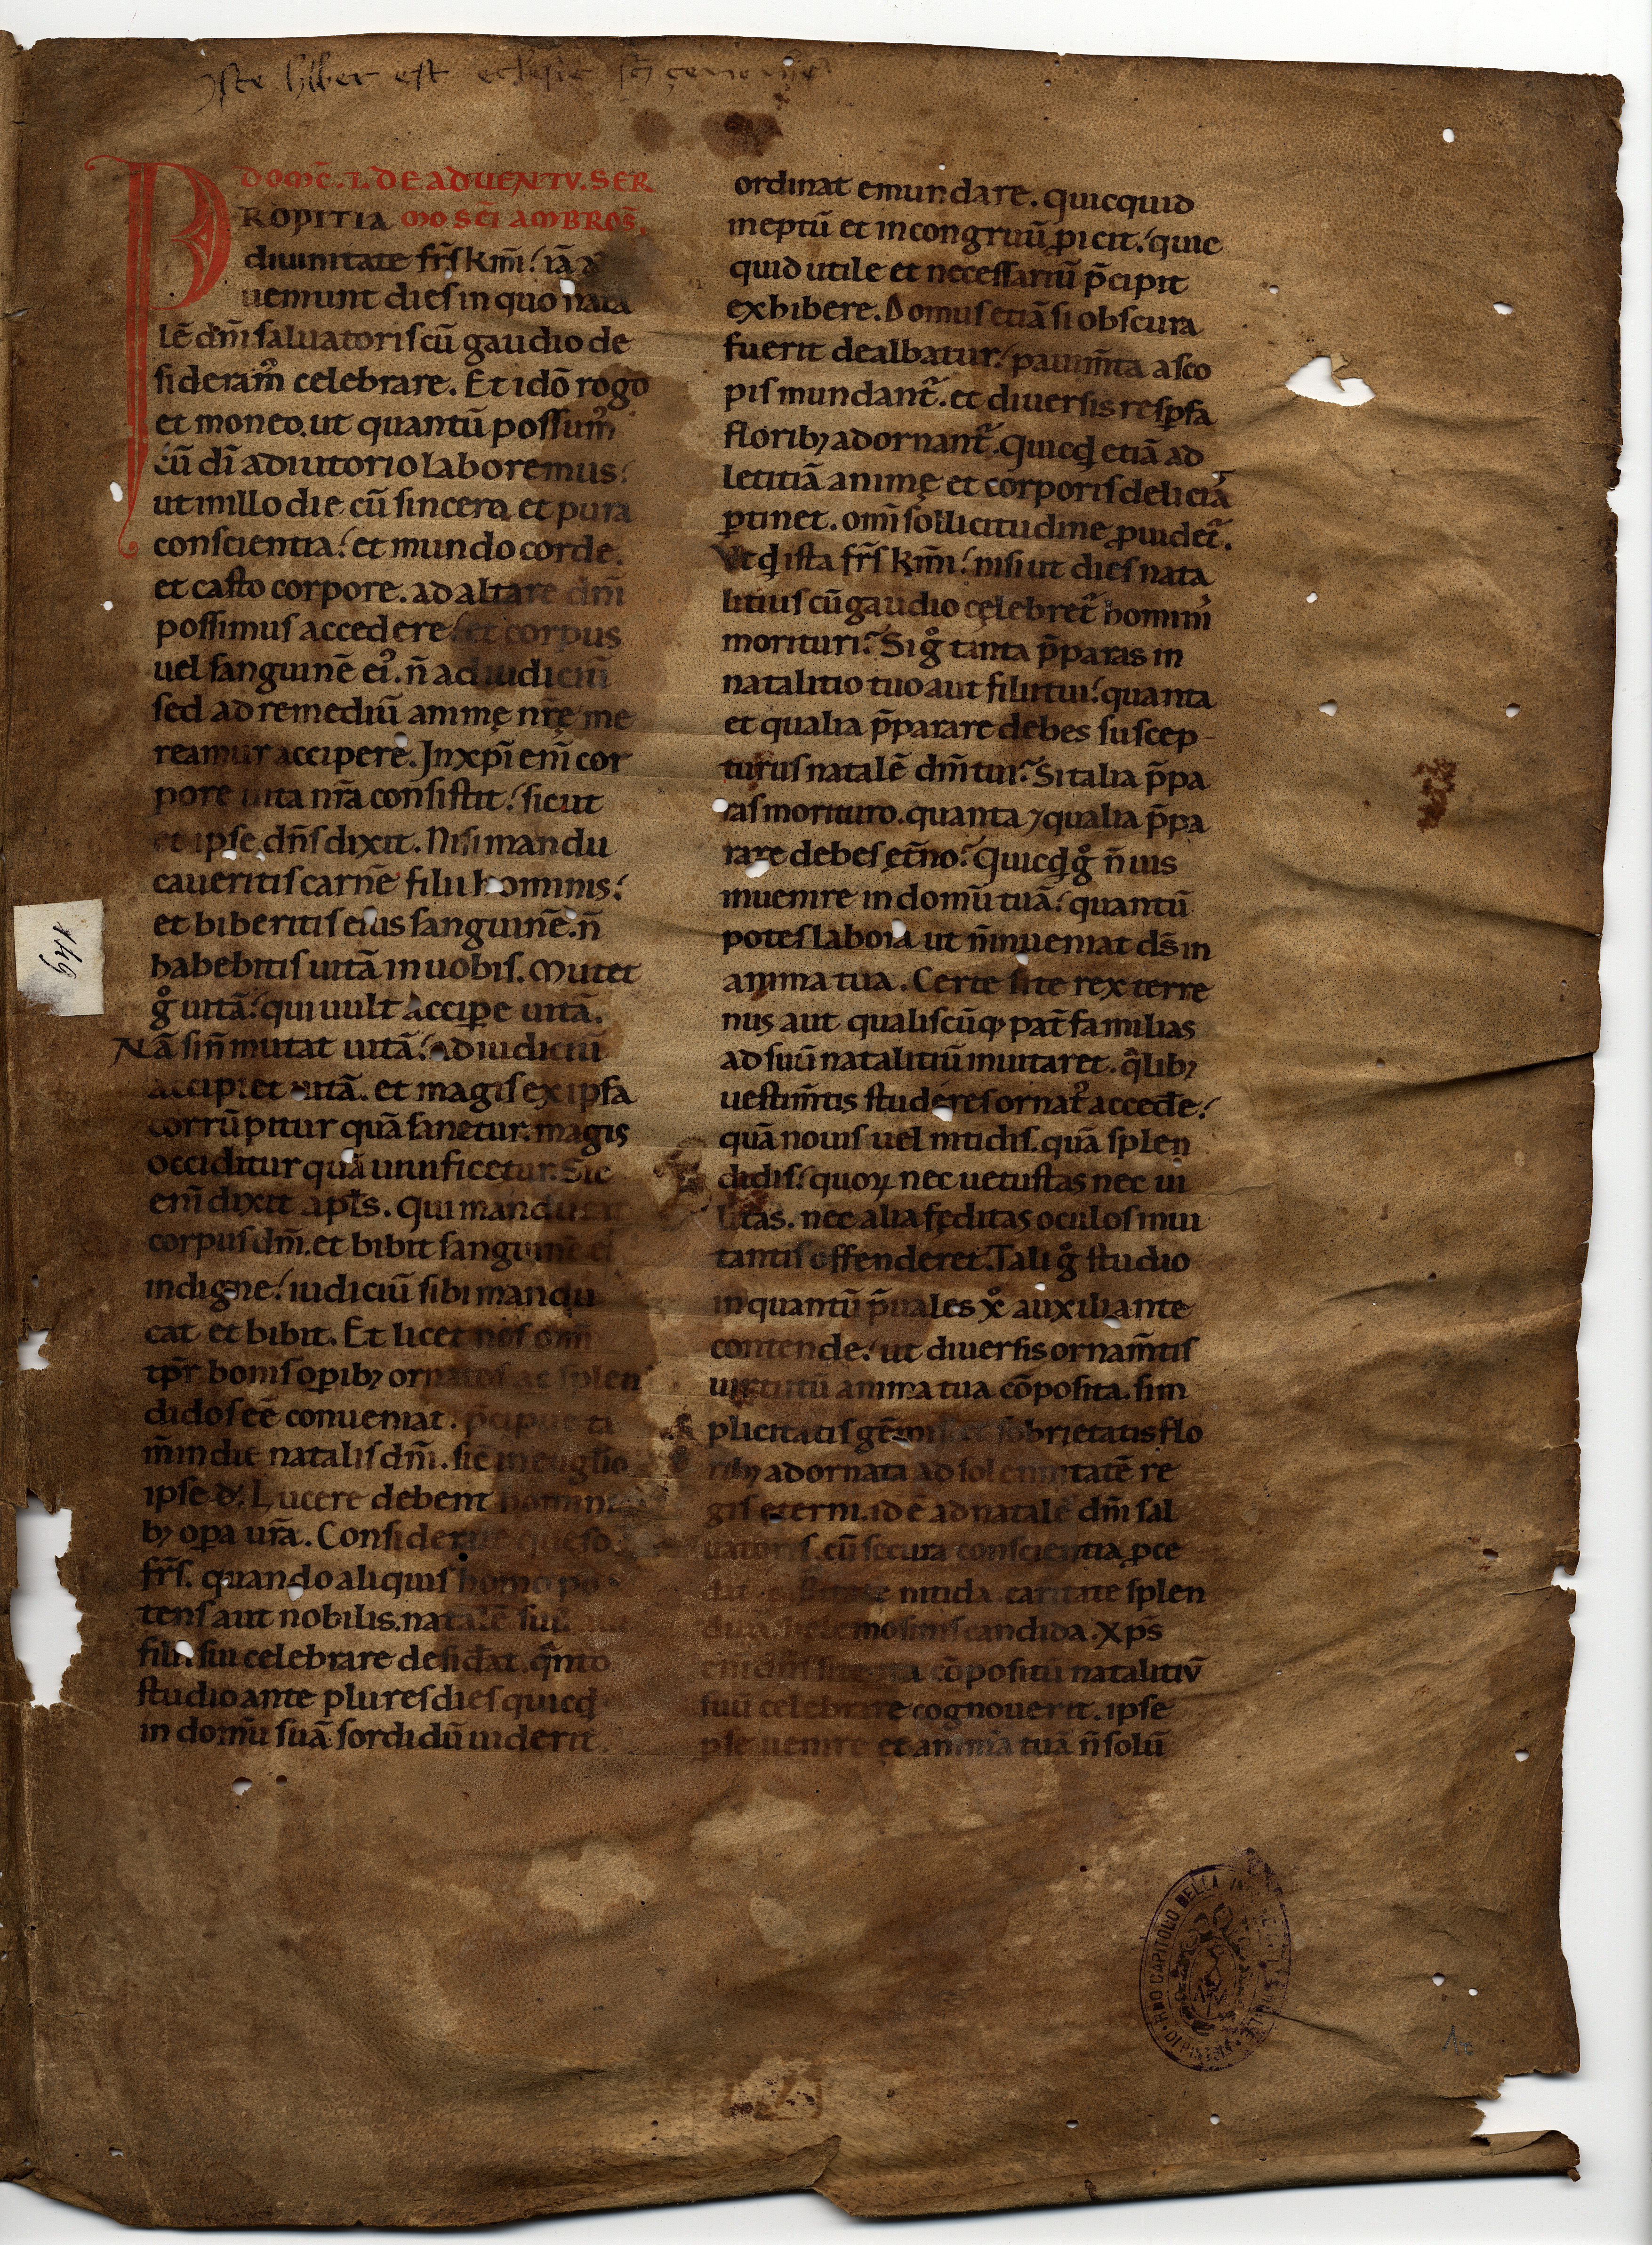 Iste liber est eclesie sci çenonis
DOMC̄. I. DE ADVENTV. SER
PROPITIA MO SC̄I AMBROS̄.
diuinitate fr̄s km̄i. iā ad
ueniunt dies in quo nata
lē dn̄i saluatoris cū gaudio de
sideram᷒ celebrare. Et idō rogo
et moneo. ut quantū possum᷒
cū dī adiutorio laboremus.
ut in illo die cū sincera et pura
conscientia. et mundo corde.
et casto corpore. ad altare dn̄i
possimus accedere. et corpus
uel sanguinē ei᷒. n̄ ad iudiciū
sed ad remediū animę nrę me
reamur accipere. In xp̄i eni̅ cor
pore uita nr̄a consistit. sicut
et ipse dn̄s dixit. Nisi mandu
caueritis carnē filii hominis.
et biberitis eius sanguinē. n̄
habebitis uitā in uobis. Mutet
g̊ uitā. qui uult accipe uitā.
Nā si n̄ mutat uitā. ad iudiciū
accipiet uitā. et magis ex ipsa
corrūpitur quā sanetur. magis
occiditur quā uiuificetur. Sic
eni̅ dixit apl̄s. Qui manducat
corpus dn̄i. et bibit sanguinē ei᷒
indigne. iudiciū sibi mandu
cat et bibit. Et licet nos omī
tp̄r bonis opibꝫ ornatos ac splen
didos eē conueniat. p̄cipue ta
m̄ in die natalis dn̄i. sic in euglio
ipse d̄. Lucere debent homini
bꝫ opa ur̄a. Considerate queso
fr̄s. quando aliquis homo po
tens aut nobilis. natalē suū aut
filii sui celebrare desidat. q̄nto
studio ante plures dies quicq̄
in domū suā sordidū uiderit
ordinat emundare. quicquid
ineptū et incongruū ꝓicit. quic
quid utile et necessariū p̄cipit
exhibere. Domus etiā si obscura
fuerit dealbatur. pauim̄ta a sco
pis mundant᷑. et diuersis respsa
floribꝫ adornant᷑. Quicq̄ etiā ad
letitiā animę et corporis deliciā
ꝑtinet. omī sollicitudine ꝓuidet᷑.
Ut qͥ ista fr̄s km̄i. nisi ut dies nata
litius cū gaudio cęlebret᷑ homini᷒
morituri. Si g̊ tanta p̄paras in
natalitio tuo aut filii tui. quanta
et qualia p̄parare debes suscep-
turus natalē dn̄i tui. Si talia p̄pa
ras morituro. quanta ⁊ qualia p̄pa
rare debes ęt̄no. Quicq̄ g̊ n̄ uis
inuenire in domū tuā. quantū
potes labora ut n̄ inueniat d̄s in
anima tua. Certe si te rex terre
nus aut qualiscūqꝫ pat̄ familias
ad suū natalitiū inuitaret. q̄libꝫ
uestim̄tis studeres ornat᷒ accede.
quā nouis uel nitidis. quā splen
didis. quoꝝ nec uetustas nec ui
litas. nec alia fęditas oculos inui
tantis offenderet. Tali g̊ studio
inquantū p̄uales xͦ auxiliante
contende. ut diuersis ornam̄tis
uirtutū anima tua cōposita. sim
plicitatis gēmis et sobrietatis flo
ribꝫ adornata ad solemnitatē re
gis eterni. id ē ad natale dn̄i sal
uatoris. cū secura conscientia ꝓce
dit castitate nitida caritate splen
dida. helemosinis candida. Xp̄s
eni̅ dn̄s si te ita cōpositū natalitiū
suū celebrare cognouerit. ipse
ꝑse uenire et animā tuā n̄ solū
149
CAPITOLO DELLA
DI PISTOIA